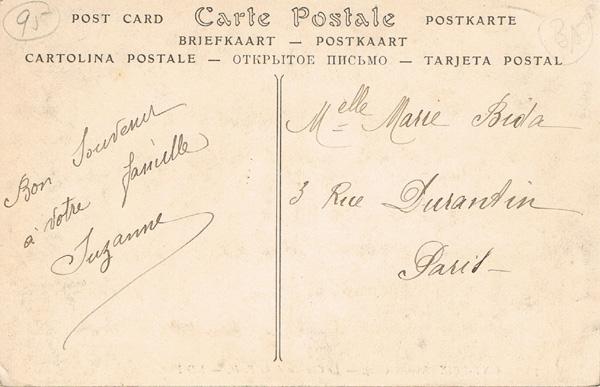 95-
POST CARD Carte Postale POSTKARTE
BRIEFKAART — POSTKAART
CARTOLINA POSTALE — ОТКРЫТОЕ ПИСЬМО — TARJETA POSTAL
Bon Souvenir
à votre famille
Suzanne
Melle Marie Bida
3 Rue Durantin
Paris